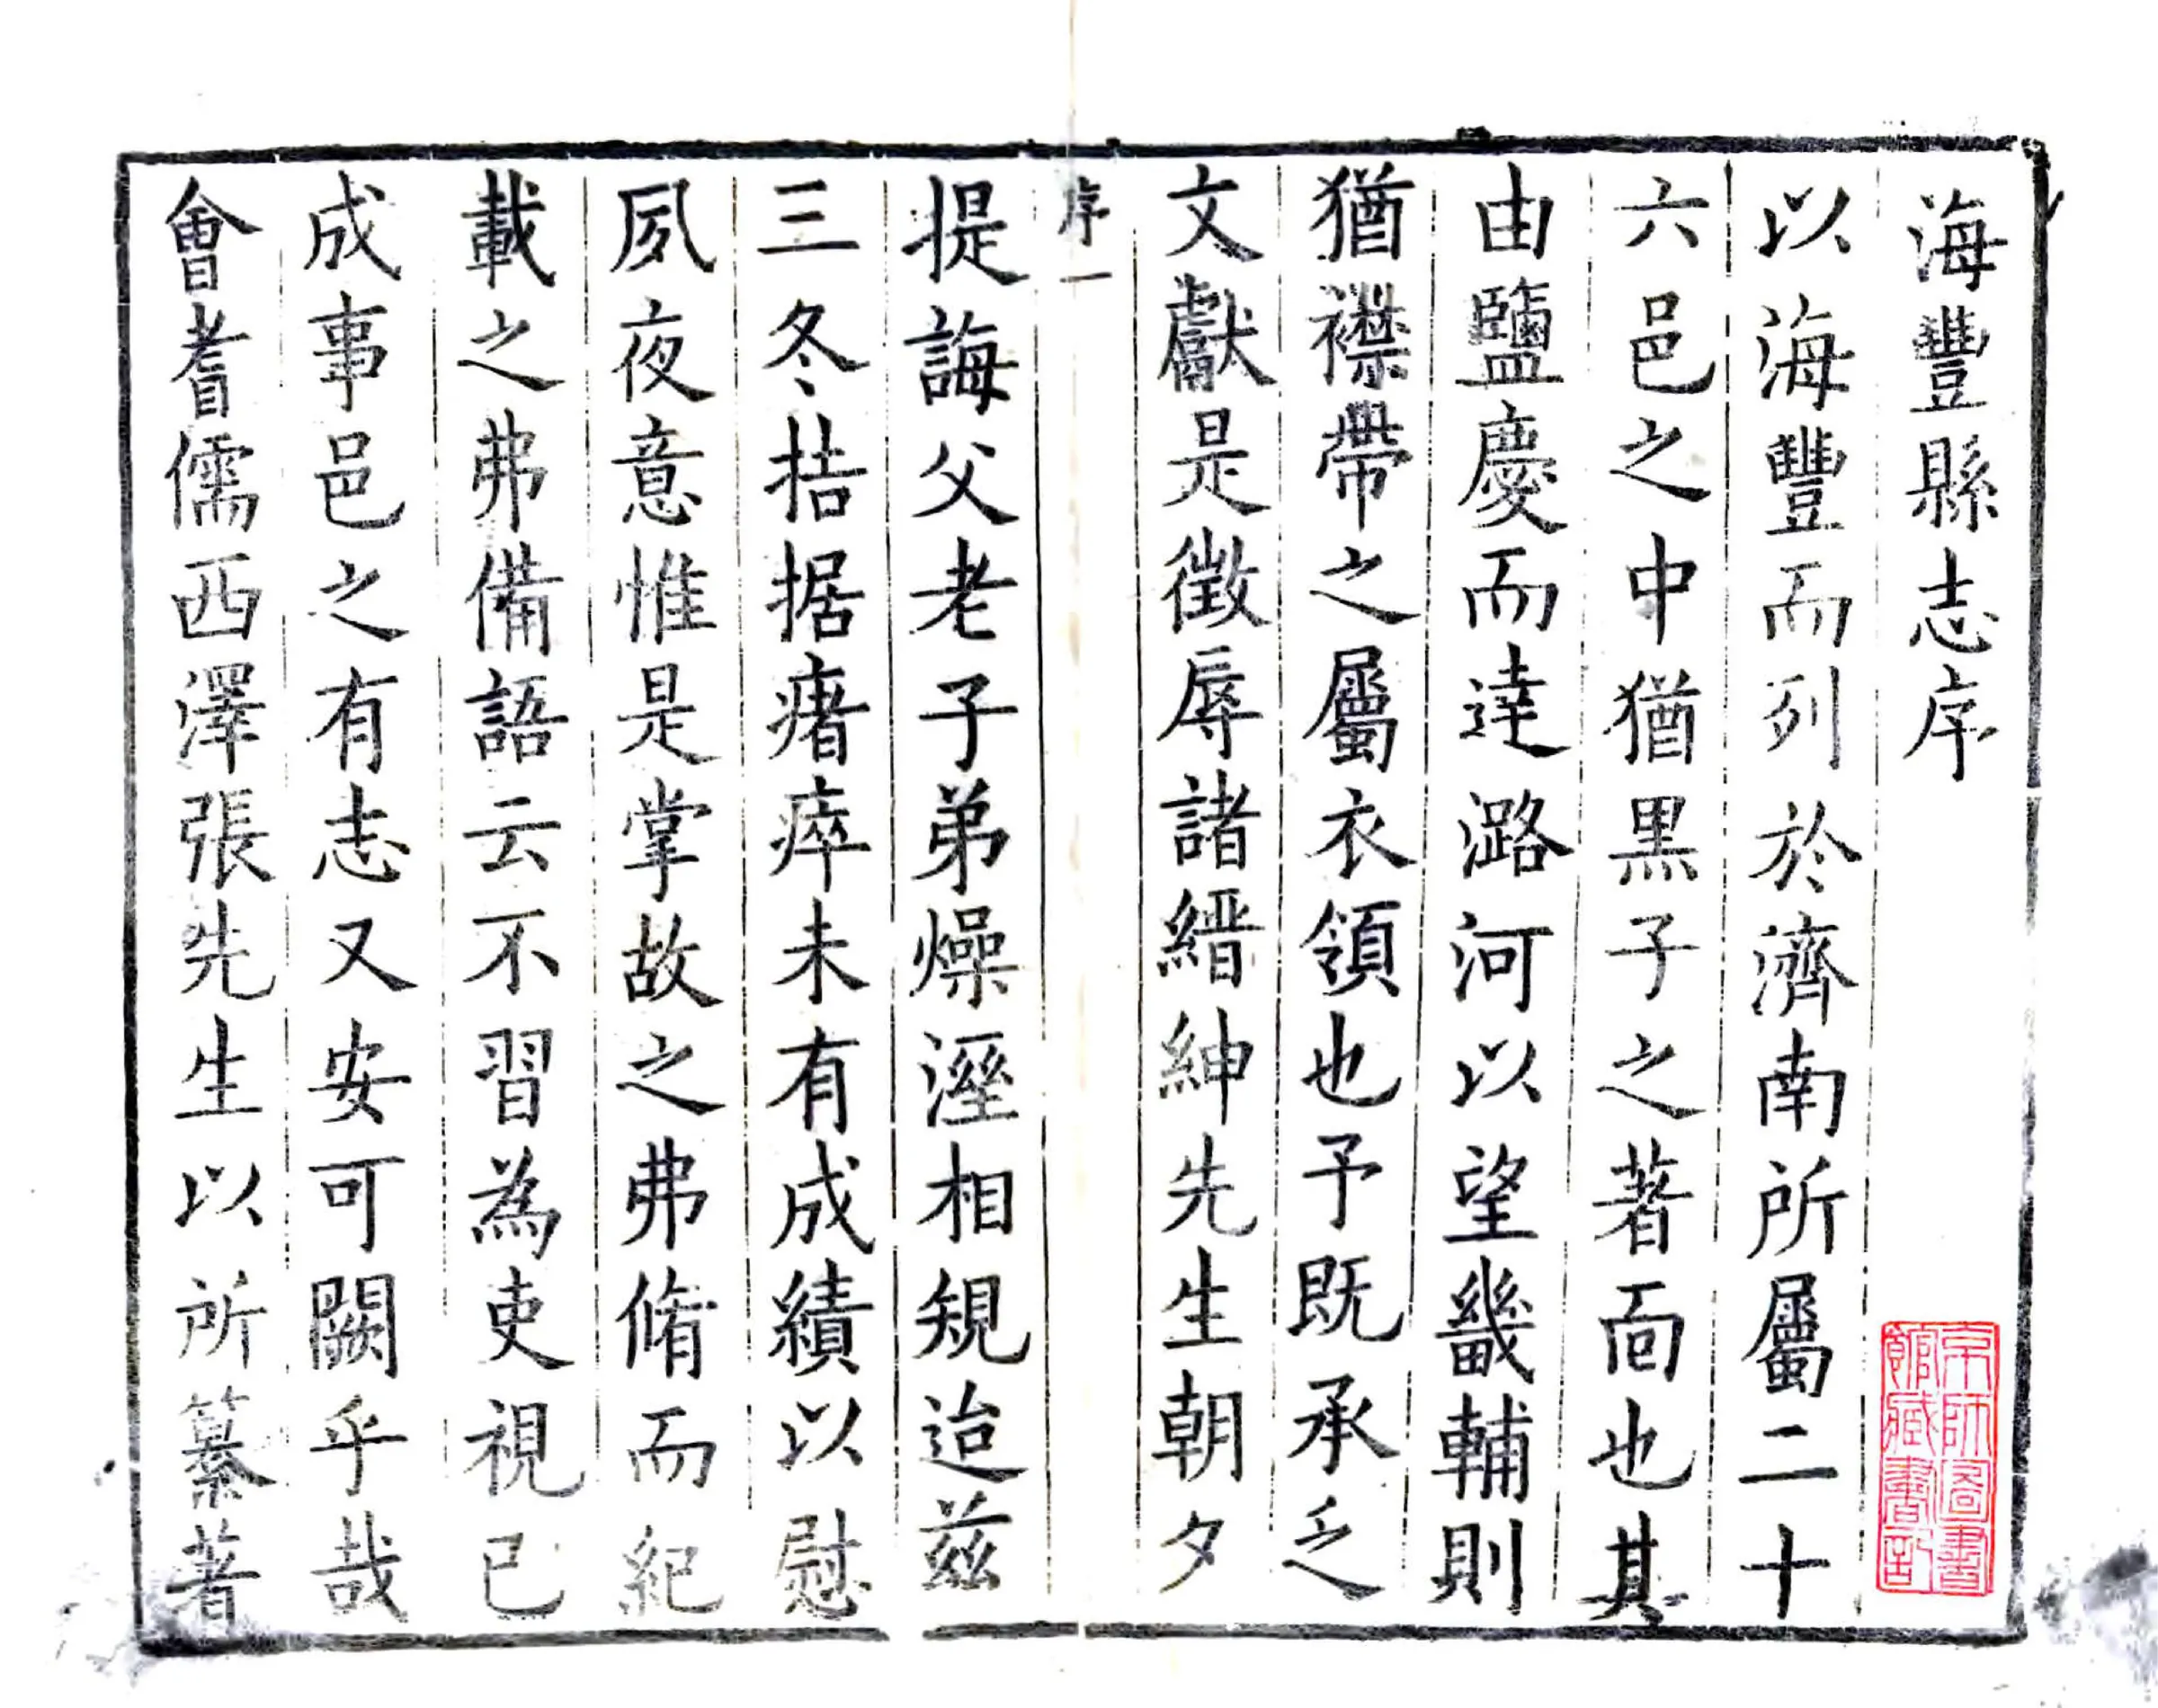 海豐縣志序
以海豐而列於濟南所屬二十
六邑之中猶黒子之著靣也其
由鹽慶而達潞河以望畿輔則
猶襟帶之屬衣領也予既承乏
文獻是徵辱諸縉紳先生朝夕
序一
提誨父老子弟燥溼相規迨茲
三冬拮据瘏瘁未有成績以慰
夙夜意惟是掌故之弗脩而紀
載之弗備語云不習為吏視已
成事邑之有志又安可闕乎哉
會耆儒西澤張先生以所纂著
京師圖書
館藏書記